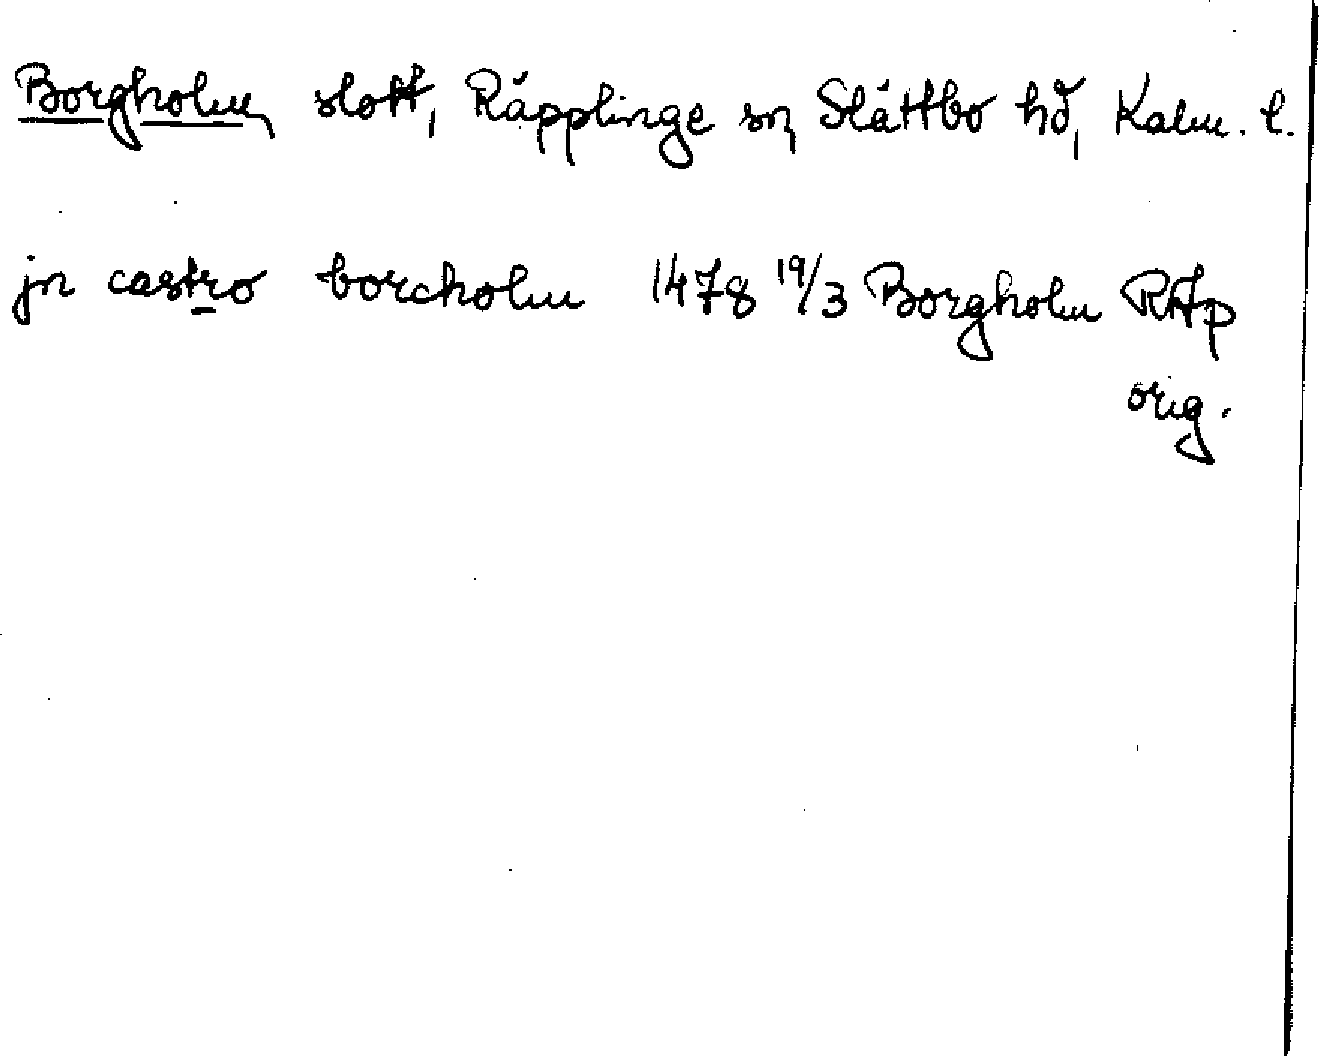 Borgholm, slott, Räpplinge sn, Slättbo hd, Kalm. l.
jn castro borcholm 1478 19/3 Borgholm RAp
orig.